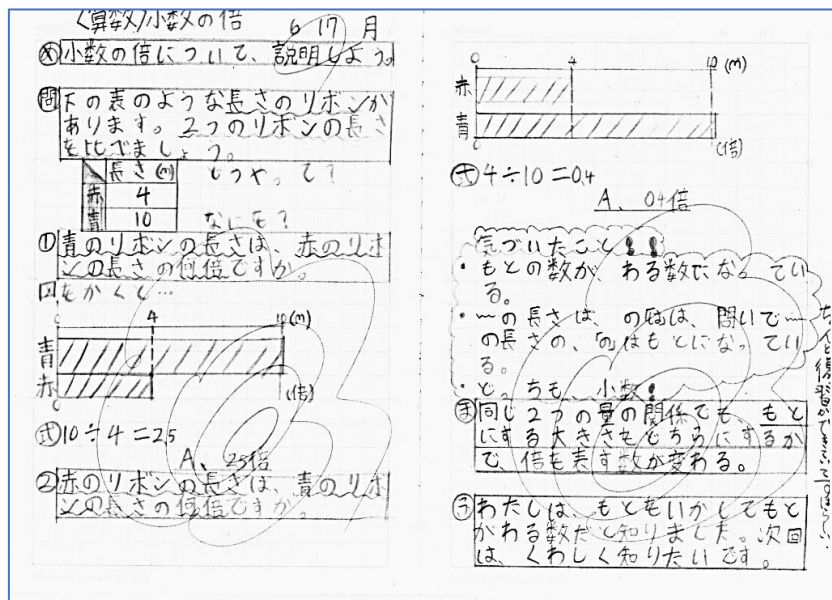 〈算数〉小数の倍 6 17 月
め 小数の倍について、説明しよう。
問 下の表のような長さのリボンが
あります。2つのリボンの長さ
を比べましょう。
長さ(m) どうやって?
赤 4
青 10 なにを?
① 青のリボンの長さは、赤のリボ
ンの長さの何倍ですか。
図をかくと…
0 4 10 (m)
青
赤
0 (倍)
式 10÷4=2.5
A、2.5倍
② 赤のリボンの長さは、青のリボ
ンの長さの何倍ですか。
0 4 10 (m)
赤
青
0 (倍)
式 4÷10=0.4
A、0.4倍
気づいたこと!!
・もとの数が、わる数になってい
る。
・〜の長さは、のはは、問いで〜
の長さの、のはもとになってい
る。
・どっちも、小数!
ま 同じ2つの量の関係でも、もと
にする大きさをどちらにするか
で、倍を表す数が変わる。
ラ わたしは、もともいかしてもと
がわる数だと知りました。次回
は、くわしく知りたいです。